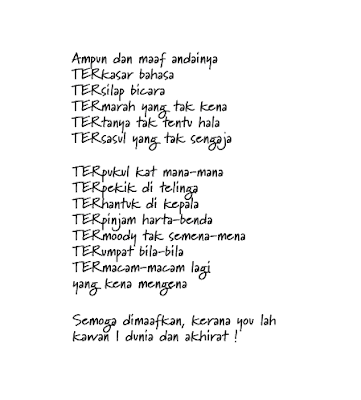 Ampun dan maaf andainya
TERkasar bahasa
TERsilap bicara
TERmarah yang tak kena
TERtanya tak tentu hala
TERsasul yang tak sengaja
TERpukul kat mana-mana
TERpekik di telinga
TERhantuk di kepala
TERpinjam harta-benda
TERmoody tak semena-mena
TERumpat bila-bila
TERmacam-macam lagi
yang kena mengena
Semoga dimaafkan, kerana you lah
kawan I dunia dan akhirat !